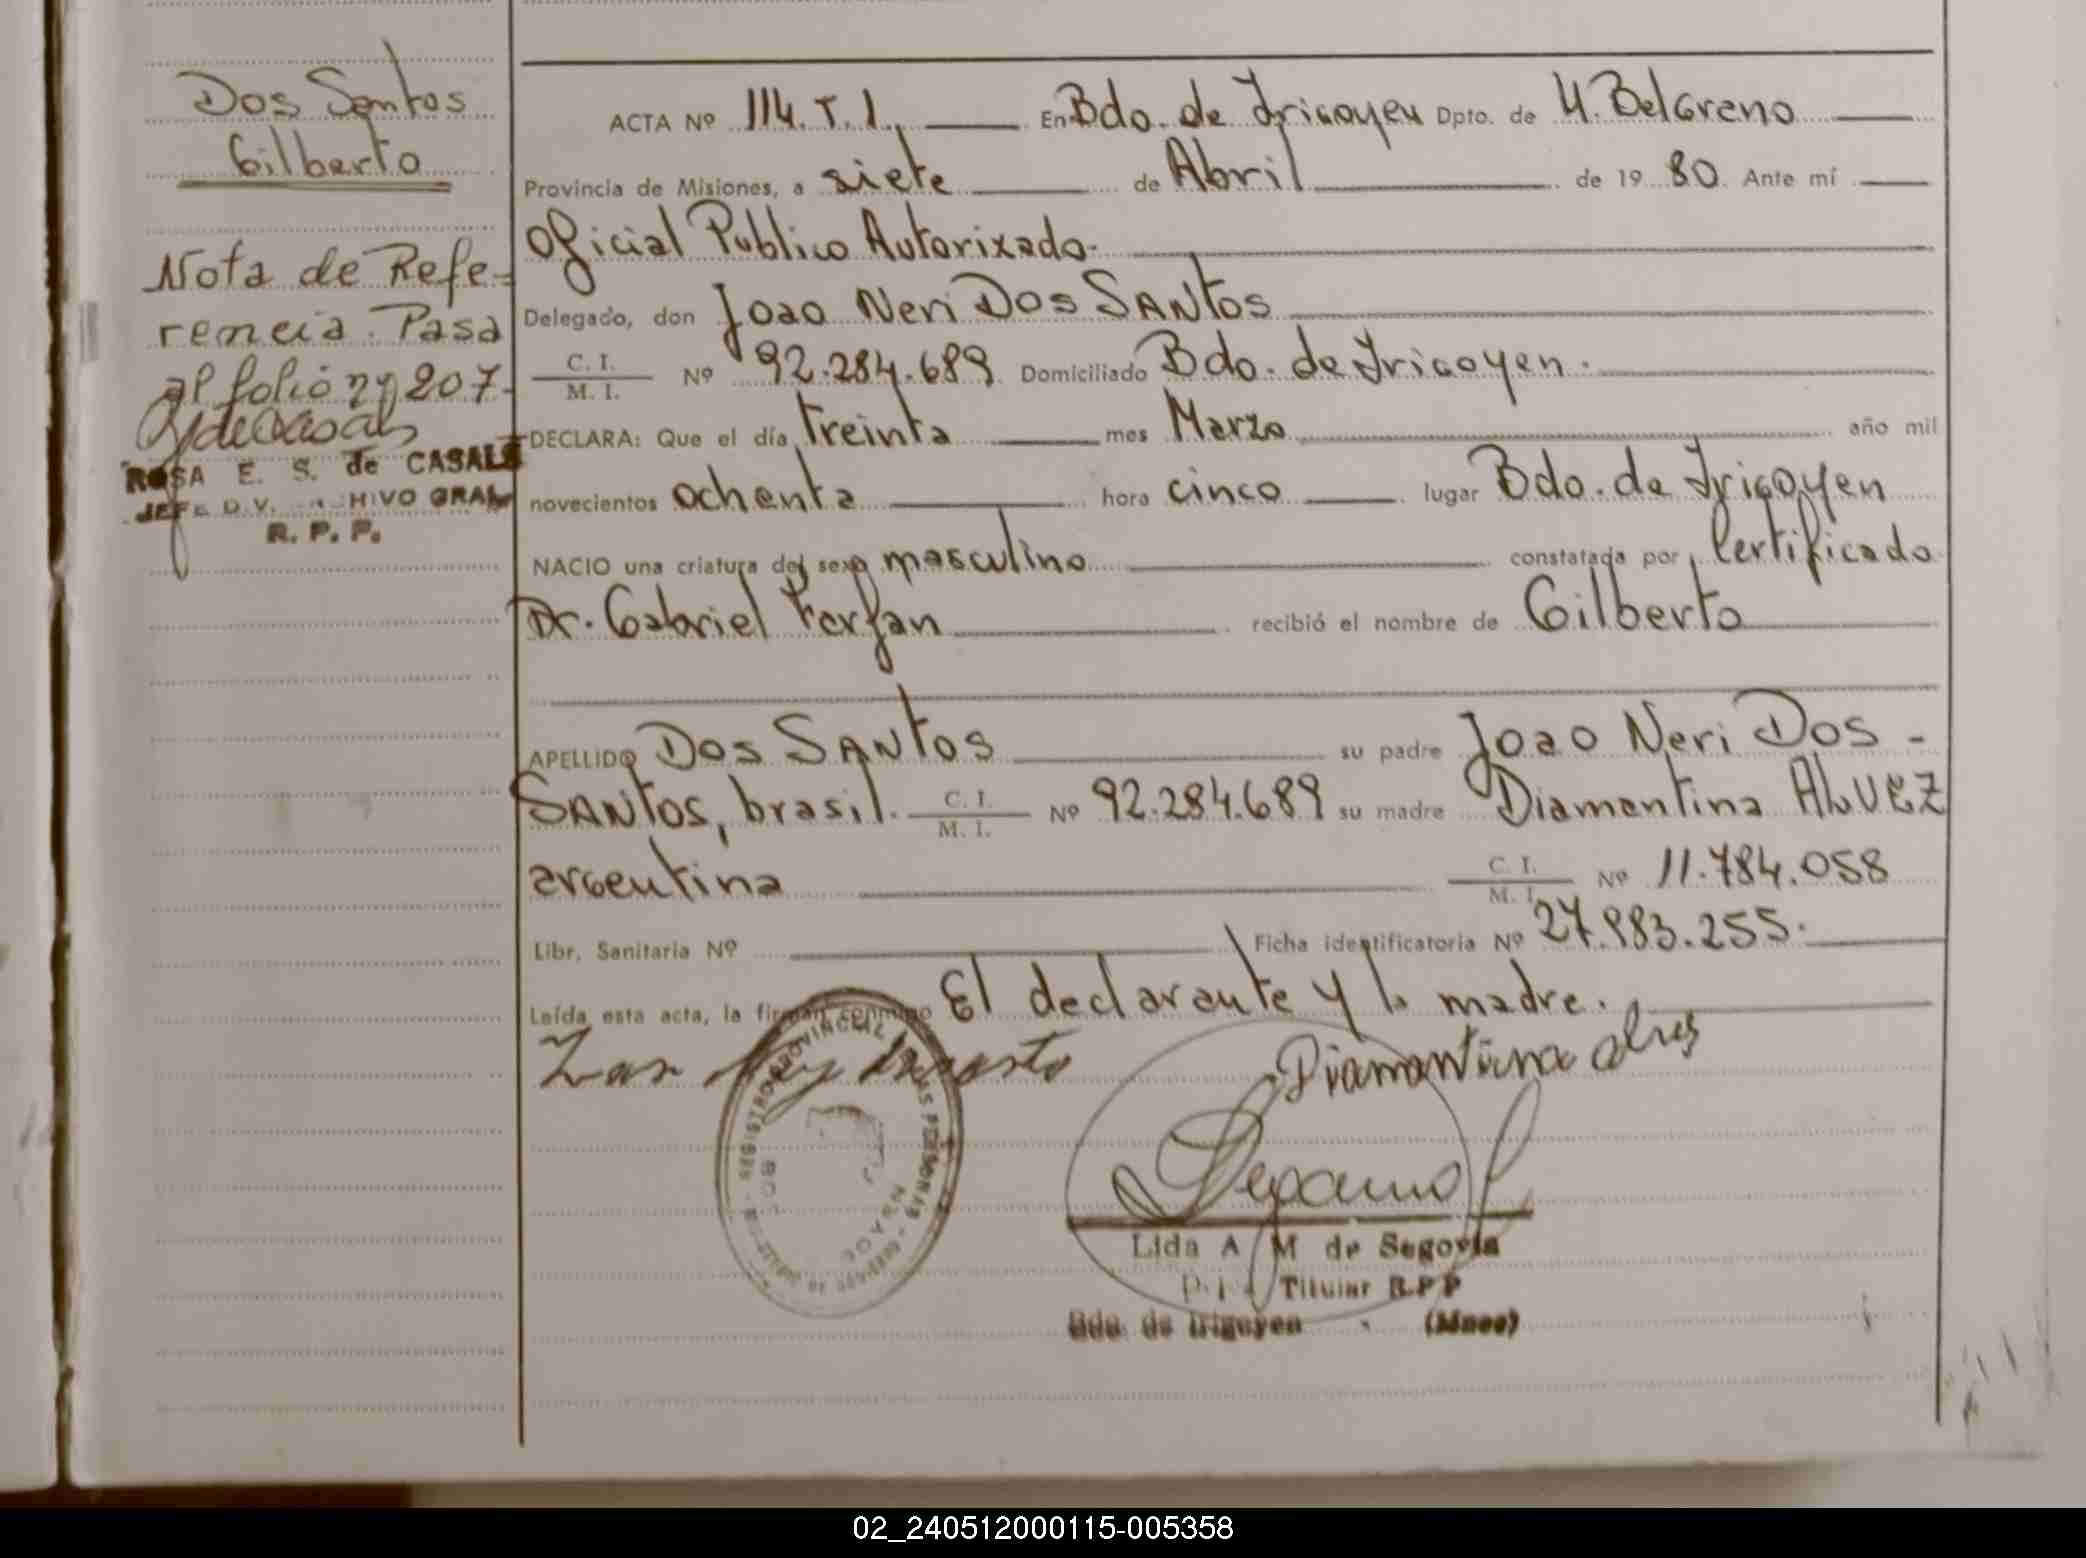 Dos Santos
Gilberto
Nota de Refe-
rencia. Pasa
al folio nº 207-
ROSA E. S. de CASALS
JEFE DIV. HIVO GRAL
R. P. P.
ACTA Nº 114. T. I. En Bdo. de Irigoyen Dpto. de M. Belgrano
Provincia de Misiones, a siete de Abril de 19 80. Ante mí
Oficial Publico Autorizado.
Delegado, don Joao Neri Dos SANTOS
C. I. / M. I. Nº 92.284.689 Domiciliado Bdo. de Irigoyen.
DECLARA: Que el día treinta mes Marzo año mil
novecientos ochenta hora cinco lugar Bdo. de Irigoyen
NACIO una criatura del sexo masculino constatada por Certificado
Dr. Gabriel Farfan recibió el nombre de Gilberto
APELLIDO Dos SANTOS su padre Joao Neri Dos -
SANTOS, brasil. C. I. / M. I. Nº 92.284.689 su madre Diamantina ALVEZ
argentina C. I. / M. I. Nº 11.784.058
Libr. Sanitaria Nº Ficha identificatoria Nº 27.983.255.
Leída esta acta, la firman conmigo El declarante y la madre.
Diamantina
Lida A M de Segovia
Titular R.P.P
Bdo. de Irigoyen (Mnes)
02_240512000115-005358